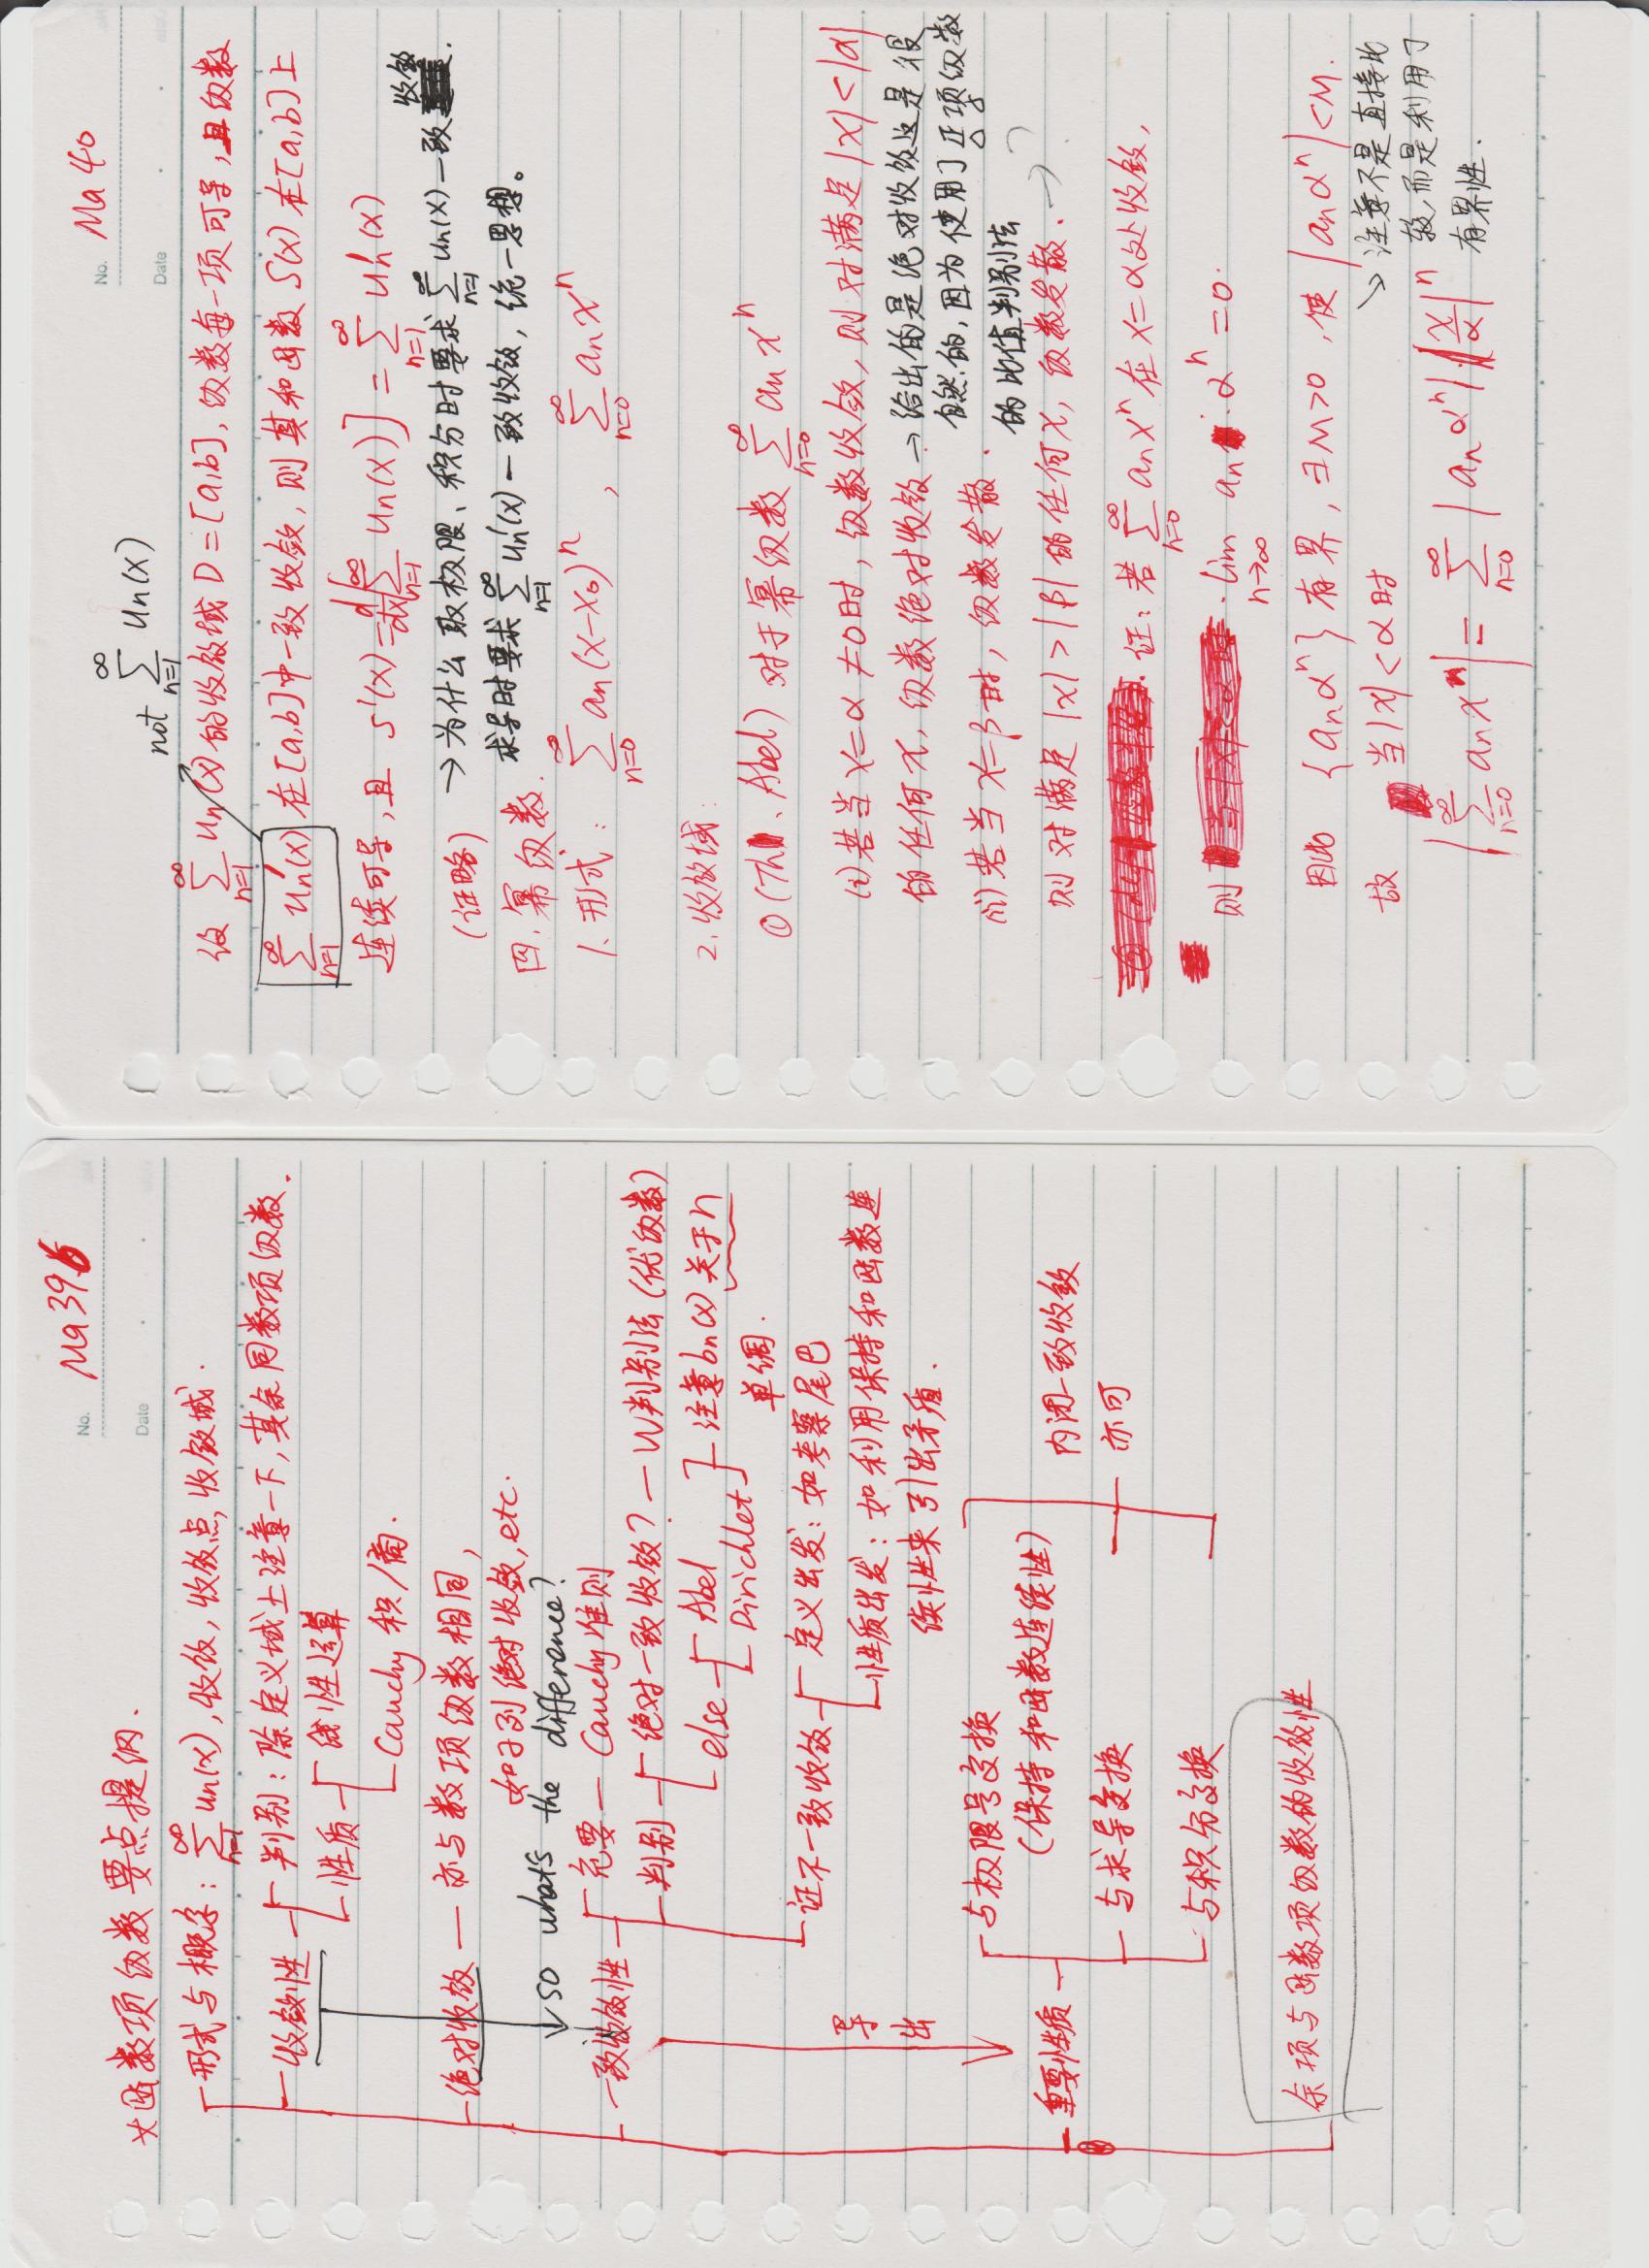 No. Ma39
Date
*函数项级数要点提纲.
形式与概念: $\sum_{n=1}^{\infty} u_n(x)$, 收敛, 收敛点, 收敛域.
收敛性
判别: 除定义域上注意一下, 其余同数项级数.
性质
线性运算
Cauchy 积/商.
绝对收敛 — 亦与数项级数相同,
如子列绝对收敛, etc.
so what's the difference?
一致收敛性
充要 — Cauchy准则
判别
绝对一致收敛? — W判别法 (优级数)
else
Abel
Dirichlet
注意bn(x) 关于n
单调.
证不一致收敛
定义出发: 如考察尾巴
性质出发: 如利用保持和函数连
续性来引出矛盾.
导出
重要性质
与极限号交换
(保持和函数连续性)
与求导交换
与积分交换
内闭一致收敛
亦可
余项与函数项级数的收敛性
No. Ma 40
Date
not $\sum_{n=1}^{\infty} u_n(x)$
设 $\sum_{n=1}^{\infty} u_n(x)$ 的收敛域 D = [a,b], 级数每一项可导, 且级数
$\sum_{n=1}^{\infty} u_n'(x)$ 在[a,b]中一致收敛, 则其和函数 S(x) 在[a,b]上
连续可导, 且 $S'(x) = \frac{d}{dx}[\sum_{n=1}^{\infty} u_n(x)] = \sum_{n=1}^{\infty} u_n'(x)$
(证略)
→ 为什么取极限、积分时要求 $\sum_{n=1}^{\infty} u_n(x)$ 一致收敛.
求导时要求 $\sum_{n=1}^{\infty} u_n'(x)$ 一致收敛, 统一思想。
四. 幂级数.
1. 形式: $\sum_{n=0}^{\infty} a_n(x-x_0)^n$, $\sum_{n=0}^{\infty} a_n x^n$
2. 收敛域:
① (Th、Abel) 对于幂级数 $\sum_{n=0}^{\infty} a_n x^n$
(i) 若当 x=α≠0时, 级数收敛, 则对满足 |x|<|α|
的任何x, 级数绝对收敛
→ 给出的是绝对收敛这是很
自然的, 因为使用了正项级数
的比值判别法
(ii) 若当 x=β时, 级数发散.
则对满足 |x|>|β| 的任何x, 级数发散. → ?
证: 若 $\sum_{n=0}^{\infty} a_n x^n$ 在 x=α处收敛,
则 $\lim_{n→∞} a_n · α^n = 0$.
因此 $\{a_n α^n\}$ 有界, ∃M>0, 使 $|a_n α^n| < M$.
故 当|x|<α时
$|\sum_{n=0}^{\infty} a_n x^n| = \sum_{n=0}^{\infty} |a_n α^n| |\frac{x}{α}|^n$
↘ 注意不是直接比
较, 而是利用了
有界性.